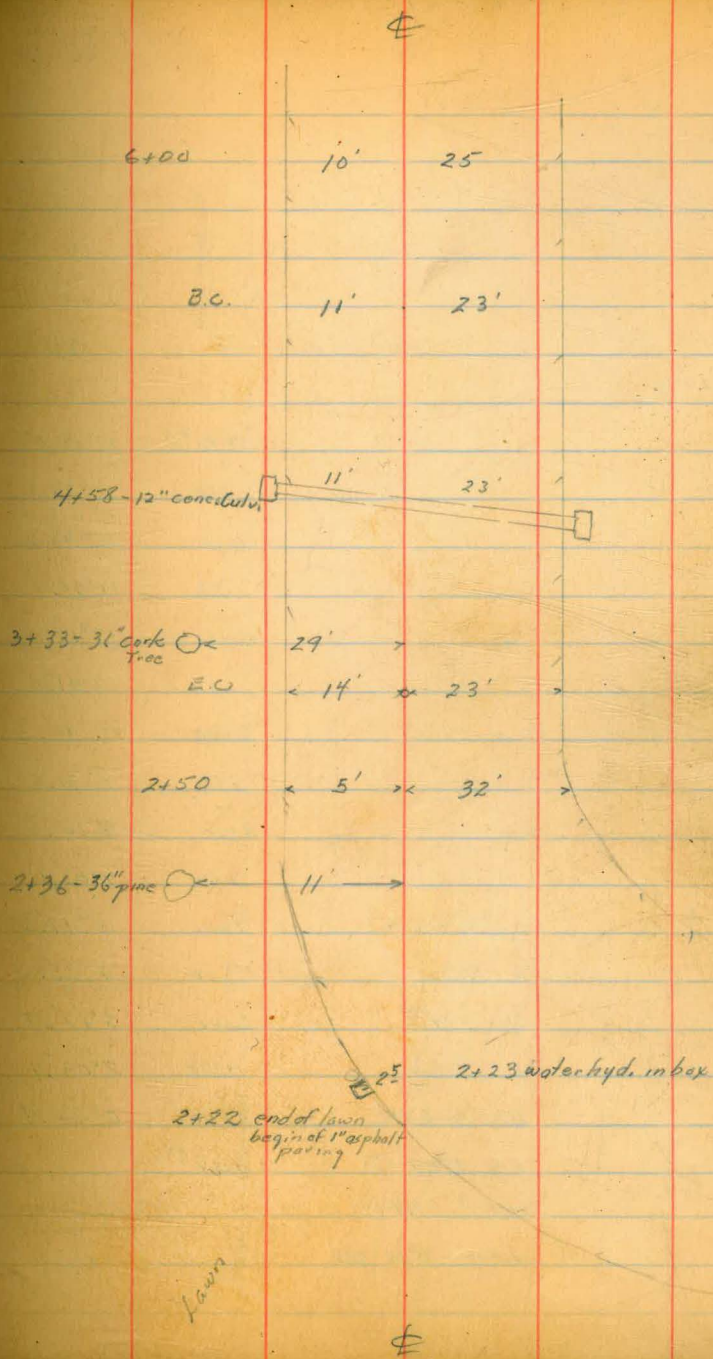 ℄
6+00 10' 25
B.C. 11' 23'
4+58-12" conc. Culv. 11' 23'
3+33-36" cork 29'
Tree
E.C 14' 23'
2+50 5' 32'
2+36-36" pine 11'
2⁵ 2+23 water hyd. in box
2+22 end of lawn
begin of 1" asphalt
paving
Lawn
℄